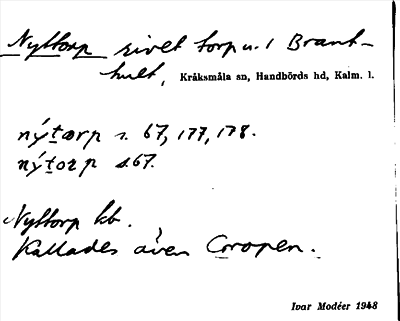 Nyttorp rivet torp u. 1 Brant-
hult, Kråksmåla sn, Handbörds hd, Kalm. l.
nýtorp s. 67, 177, 178.
nýtorp s. 67.
Nyttorp kb.
Kallades även
Ivar Modéer 1948